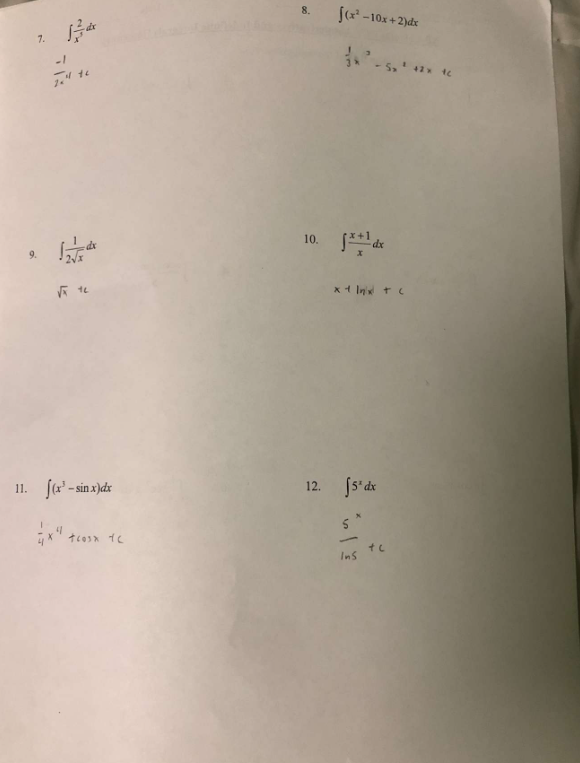 7. ∫ 2/x⁵ dx
-1/2x⁴ +c
8. ∫(x² – 10x + 2)dx
1/3 x³ - 5x² +2x +c
9. ∫ 1/(2√x) dx
√x +c
10. ∫ (x+1)/x dx
x + ln|x| + c
11. ∫(x³ – sin x)dx
1/4 x⁴ +cosx +c
12. ∫5ˣ dx
5ˣ/ln5 +c